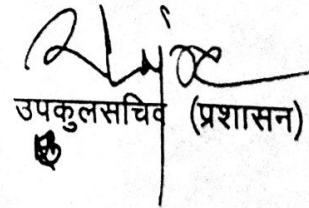 उपकुलसचिव (प्रशासन)